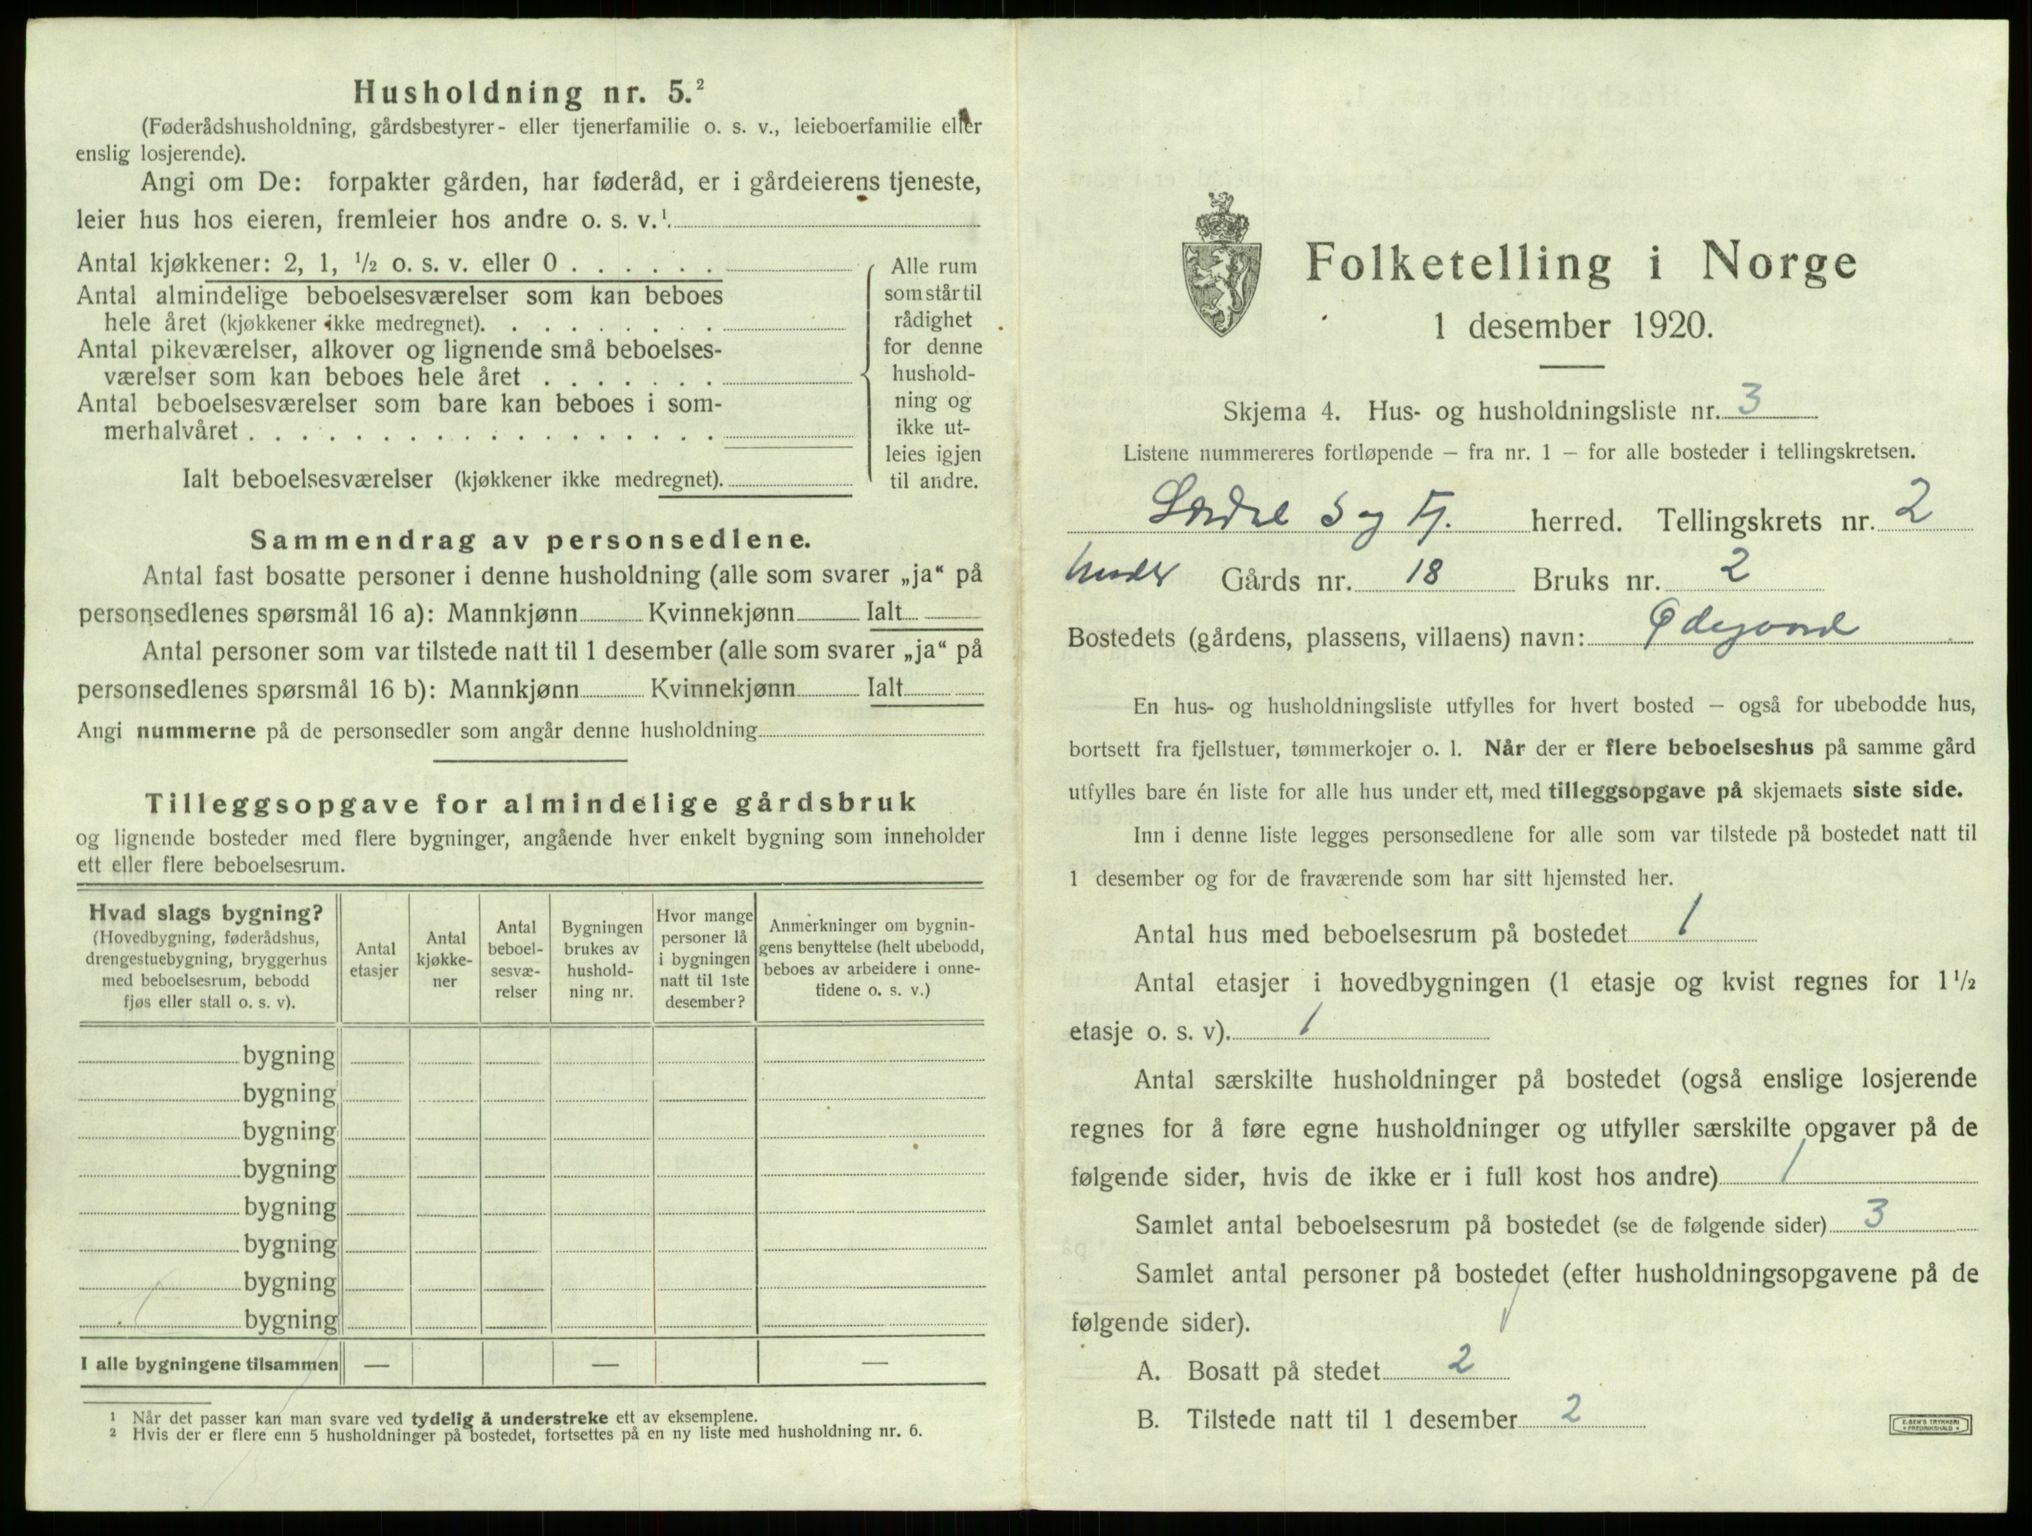 Husholdning nr. 5.²
(Føderådshusholdning, gårdsbestyrer- eller tjenerfamilie o. s. v., leieboerfamilie eller
enslig losjerende).
Angi om De: forpakter gården, har føderåd, er i gårdeierens tjeneste,
leier hus hos eieren, fremleier hos andre o. s. v.¹
Antal kjøkkener: 2, 1, ½ o. s. v. eller 0 . . . . . .
Antal almindelige beboelsesværelser som kan beboes
hele året (kjøkkener ikke medregnet). . . . . . . . .
Antal pikeværelser, alkover og lignende små beboelses-
værelser som kan beboes hele året . . . . . . .
Antal beboelsesværelser som bare kan beboes i som-
merhalvåret . . . . . . . . . . . . . . . . . .
Ialt beboelsesværelser (kjøkkener ikke medregnet).
Alle rum
som står til
rådighet
for denne
hushold-
ning og
ikke ut-
leies igjen
til andre.
Sammendrag av personsedlene.
Antal fast bosatte personer i denne husholdning (alle som svarer „ja“ på
personsedlenes spørsmål 16 a): Mannkjønn Kvinnekjønn Ialt
Antal personer som var tilstede natt til 1 desember (alle som svarer „ja“ på
personsedlenes spørsmål 16 b): Mannkjønn Kvinnekjønn Ialt
Angi nummerne på de personsedler som angår denne husholdning
Tilleggsopgave for almindelige gårdsbruk
og lignende bosteder med flere bygninger, angående hver enkelt bygning som inneholder
ett eller flere beboelsesrum.
Hvad slags bygning?
(Hovedbygning, føderådshus,
drengestuebygning, bryggerhus
med beboelsesrum, bebodd
fjøs eller stall o. s. v).
Antal
etasjer
Antal
kjøkke-
ner
Antal
beboel-
sesvæ-
relser
Bygningen
brukes av
hushold-
ning nr.
Hvor mange
personer lå
i bygningen
natt til 1ste
desember?
Anmerkninger om bygnin-
gens benyttelse (helt ubebodd,
beboes av arbeidere i onne-
tidene o. s. v.)
bygning
bygning
bygning
bygning
bygning
bygning
bygning
bygning
I alle bygningene tilsammen — — —
¹ Når det passer kan man svare ved tydelig å understreke ett av eksemplene.
² Hvis der er flere enn 5 husholdninger på bostedet, fortsettes på en ny liste med husholdning nr. 6.
Folketelling i Norge
1 desember 1920.
Skjema 4. Hus- og husholdningsliste nr. 3
Listene nummereres fortløpende – fra nr. 1 – for alle bosteder i tellingskretsen.
Lærdal S og Fj. herred. Tellingskrets nr. 2
under Gårds nr. 18 Bruks nr. 2
Bostedets (gårdens, plassens, villaens) navn: Ødegaard
En hus- og husholdningsliste utfylles for hvert bosted – også for ubebodde hus,
bortsett fra fjellstuer, tømmerkojer o. l. Når der er flere beboelseshus på samme gård
utfylles bare én liste for alle hus under ett, med tilleggsopgave på skjemaets siste side.
Inn i denne liste legges personsedlene for alle som var tilstede på bostedet natt til
1 desember og for de fraværende som har sitt hjemsted her.
Antal hus med beboelsesrum på bostedet 1
Antal etasjer i hovedbygningen (1 etasje og kvist regnes for 1½
etasje o. s. v). 1
Antal særskilte husholdninger på bostedet (også enslige losjerende
regnes for å føre egne husholdninger og utfyller særskilte opgaver på de
følgende sider, hvis de ikke er i full kost hos andre) 1
Samlet antal beboelsesrum på bostedet (se de følgende sider) 3
Samlet antal personer på bostedet (efter husholdningsopgavene på de
følgende sider).
A. Bosatt på stedet 2
B. Tilstede natt til 1 desember 2